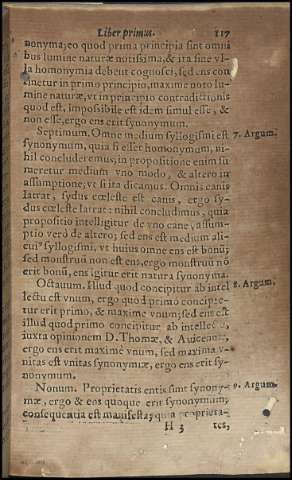 Liber primus. 117
nonyma; eo quod prima principia sint omni
bus lumine naturæ notissima, & ita sine vl-
la homonymia debent cognosci, sed ens con
tinetur in primo principio, maxime noto lu-
mine naturæ, vt in principio contradictionis
quod est, impossibile est idem simul esse, &
non esse, ergo ens erit synonymum.
Septimum. Omne medium syllogismi est 7. Argum.
synonymum, quia si esset homonymum, ni-
hil concluderemus, in propositione enim su
meretur medium vno modo, & altero in
assumptione; vt si ita dicamus. Omnis canis
latrat, sydus cœleste est canis, ergo sy-
dus cœleste latrat: nihil concludimus, quia
propositio intelligitur de vno cane, assum-
ptio verò de altero; sed ens est medium ali-
cuiꝰ syllogismi, vt huius omne ens est bonū,
sed monstrū non est ens, ergo monstrū nō
erit bonū, ens igitur erit natura synonyma.
Octauum. Illud quod concipitur ab intel 8. Argum.
lectu est vnum, ergo quod primò concipie-
tur erit primò, & maximè vnum; sed ens est
illud quod primo concipitur ab intellectu,
iuxta opinionem D. Thomæ, & Auicennæ,
ergo ens erit maximè vnum, sed maxima v-
nitas est vnitas synonymiæ, ergo ens erit sy-
nonymum.
Nonum. Proprietatis entis sunt synony- 9. Argum.
mæ, ergo & ens quoque erit synonymum;
consequentia est manifesta, quia proprieta-
H 3 tes,